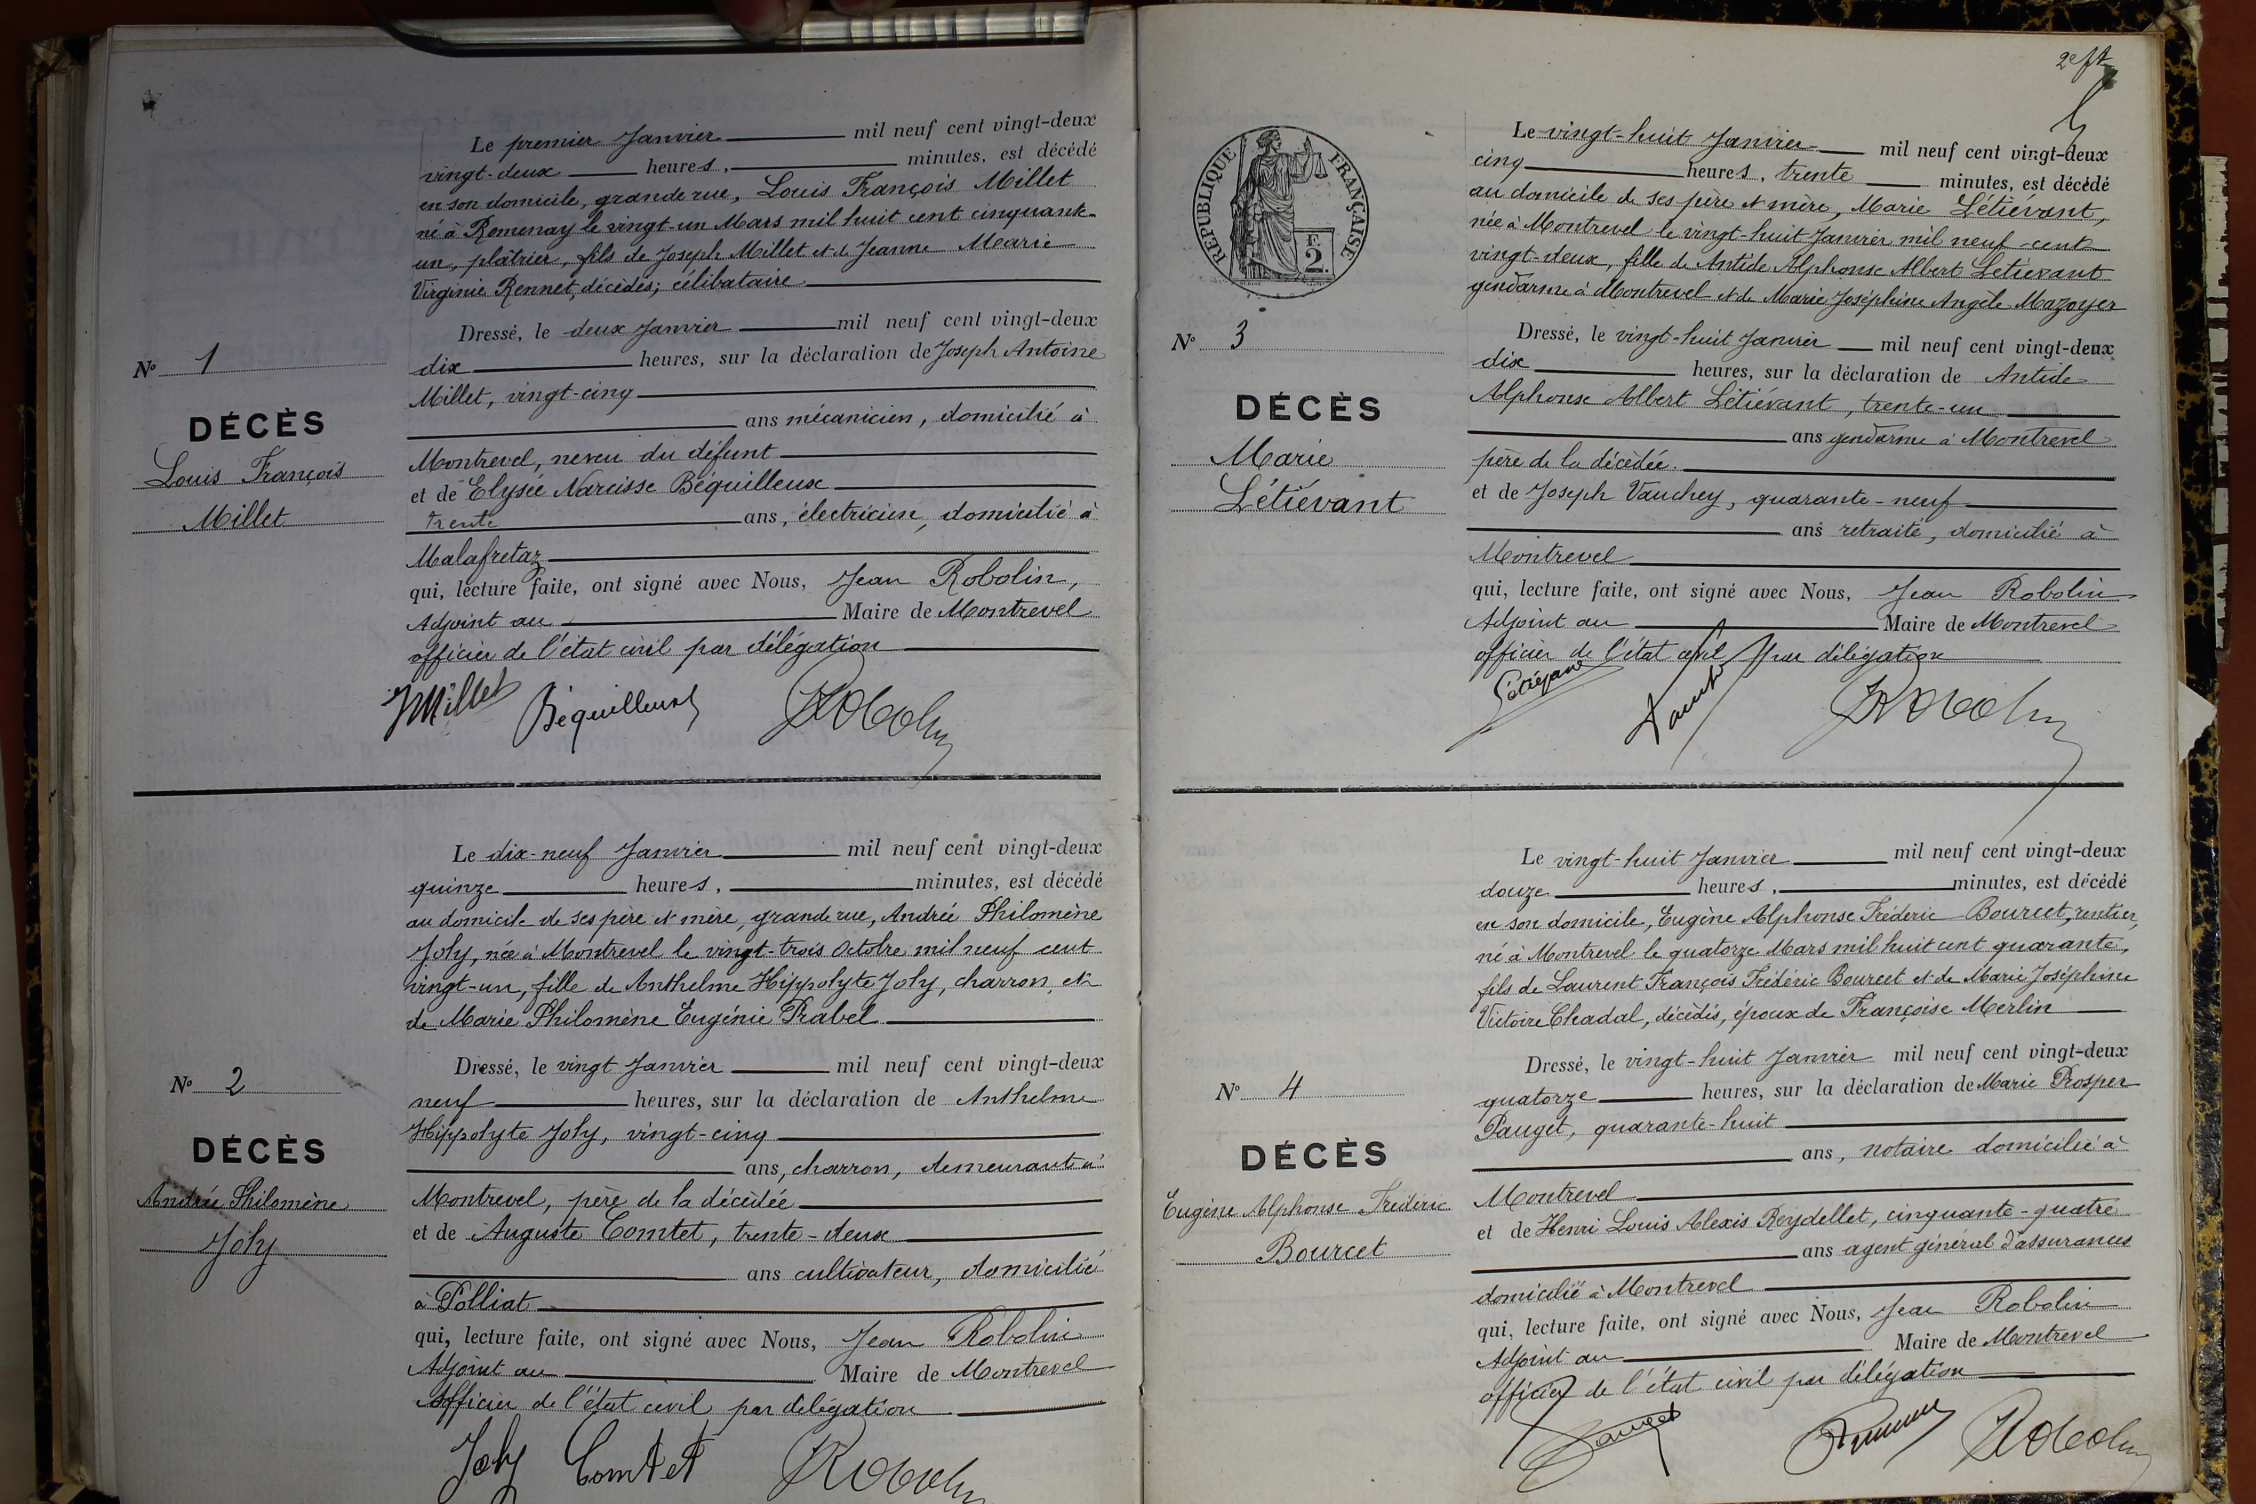 Le premier Janvier mil neuf cent vingt-deux
vingt-deux heures, minutes, est décédé
en son domicile, grande rue, Louis François Millet
né à Romenay le vingt-un Mars mil huit cent cinquante-
un, plâtrier, fils de Joseph Millet et de Jeanne Marie
Virginie Rennet, décédés; célibataire.
Dressé, le deux Janvier mil neuf cent vingt-deux
dix heures, sur la déclaration de Joseph Antoine
Millet, vingt-cinq
ans mécanicien, domicilié à
Montrevel, neveu du défunt
et de Elysée Narcisse Béquilleux
trente ans, électricien, domicilié à
Malafretaz
qui, lecture faite, ont signé avec Nous, Jean Robolin,
Adjoint au Maire de Montrevel
officier de l'état civil par délégation
JMillet Béquilleux Robolin
No 1
DÉCÈS
Louis François
Millet
Le dix-neuf Janvier mil neuf cent vingt-deux
quinze heures, minutes, est décédé
au domicile de ses père et mère, grande rue, Andrée Philomène
Joly, née à Montrevel le vingt-trois Octobre mil neuf cent
vingt-un, fille de Anthelme Hippolyte Joly, charron, et
de Marie Philomène Eugénie Prabel
Dressé, le vingt Janvier mil neuf cent vingt-deux
neuf heures, sur la déclaration de Anthelme
Hippolyte Joly, vingt-cinq
ans, charron, demeurant à
Montrevel, père de la décédée
et de Auguste Comtet, trente-deux
ans cultivateur, domicilié
à Polliat
qui, lecture faite, ont signé avec Nous, Jean Robolin
Adjoint au Maire de Montrevel
Officier de l'état civil par délégation
Joly Comtet Robolin
No 2
DÉCÈS
Andrée Philomène
Joly
RÉPUBLIQUE FRANÇAISE
F.
2.
Le vingt-huit Janvier mil neuf cent vingt-deux
cinq heures, trente minutes, est décédé
au domicile de ses père et mère, Marie Létiévant,
née à Montrevel le vingt-huit Janvier mil neuf cent
vingt-deux, fille de Antide Alphonse Albert Létiévant
gendarme à Montrevel et de Marie Joséphine Angèle Mazoyer
Dressé, le vingt-huit Janvier mil neuf cent vingt-deux
dix heures, sur la déclaration de Antide
Alphonse Albert Létiévant, trente-un
ans gendarme à Montrevel
père de la décédée.
et de Joseph Vauchey, quarante-neuf
ans retraité, domicilié à
Montrevel
qui, lecture faite, ont signé avec Nous, Jean Robolin
Adjoint au Maire de Montrevel
officier de l'état civil par délégation
Létiévant Robolin
No 3
DÉCÈS
Marie
Létiévant
Le vingt-huit Janvier mil neuf cent vingt-deux
douze heures, minutes, est décédé
en son domicile, Eugène Alphonse Fréderic Bourcet, rentier,
né à Montrevel le quatorze Mars mil huit cent quarante,
fils de Laurent François Frédéric Bourcet et de Marie Joséphine
Victoire Chadal, décédés, époux de Françoise Merlin
Dressé, le vingt-huit Janvier mil neuf cent vingt-deux
quatorze heures, sur la déclaration de Marie Prosper
Pauget, quarante-huit
ans, notaire domicilié à
Montrevel
et de Henri Louis Alexis Reydellet, cinquante-quatre
ans agent général d'assurances
domicilié à Montrevel
qui, lecture faite, ont signé avec Nous, Jean Robolin
Adjoint au Maire de Montrevel
officier de l'état civil par délégation
Pauget Robolin
No 4
DÉCÈS
Eugène Alphonse Fréderic
Bourcet